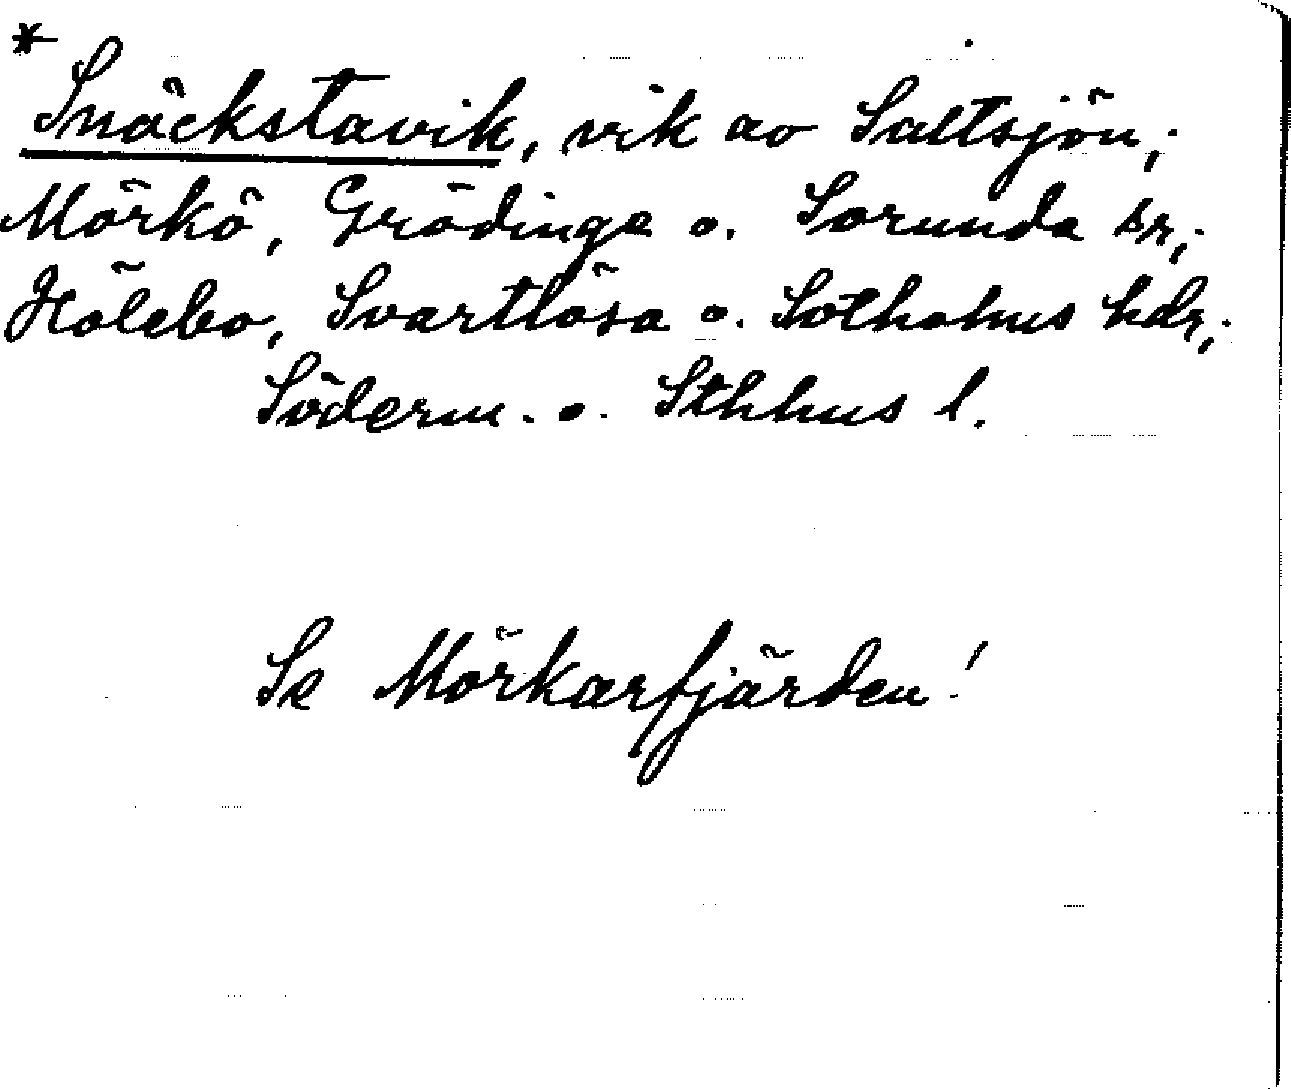 * Snäckstavik, vik av Saltsjön;
Mörkö, Grödinge o. Sorunda snr;
Hölebo, Svartlösa o. Sotholms hdr;
Söderm. o. Sthlms l.
Se Mörkarfjärden!